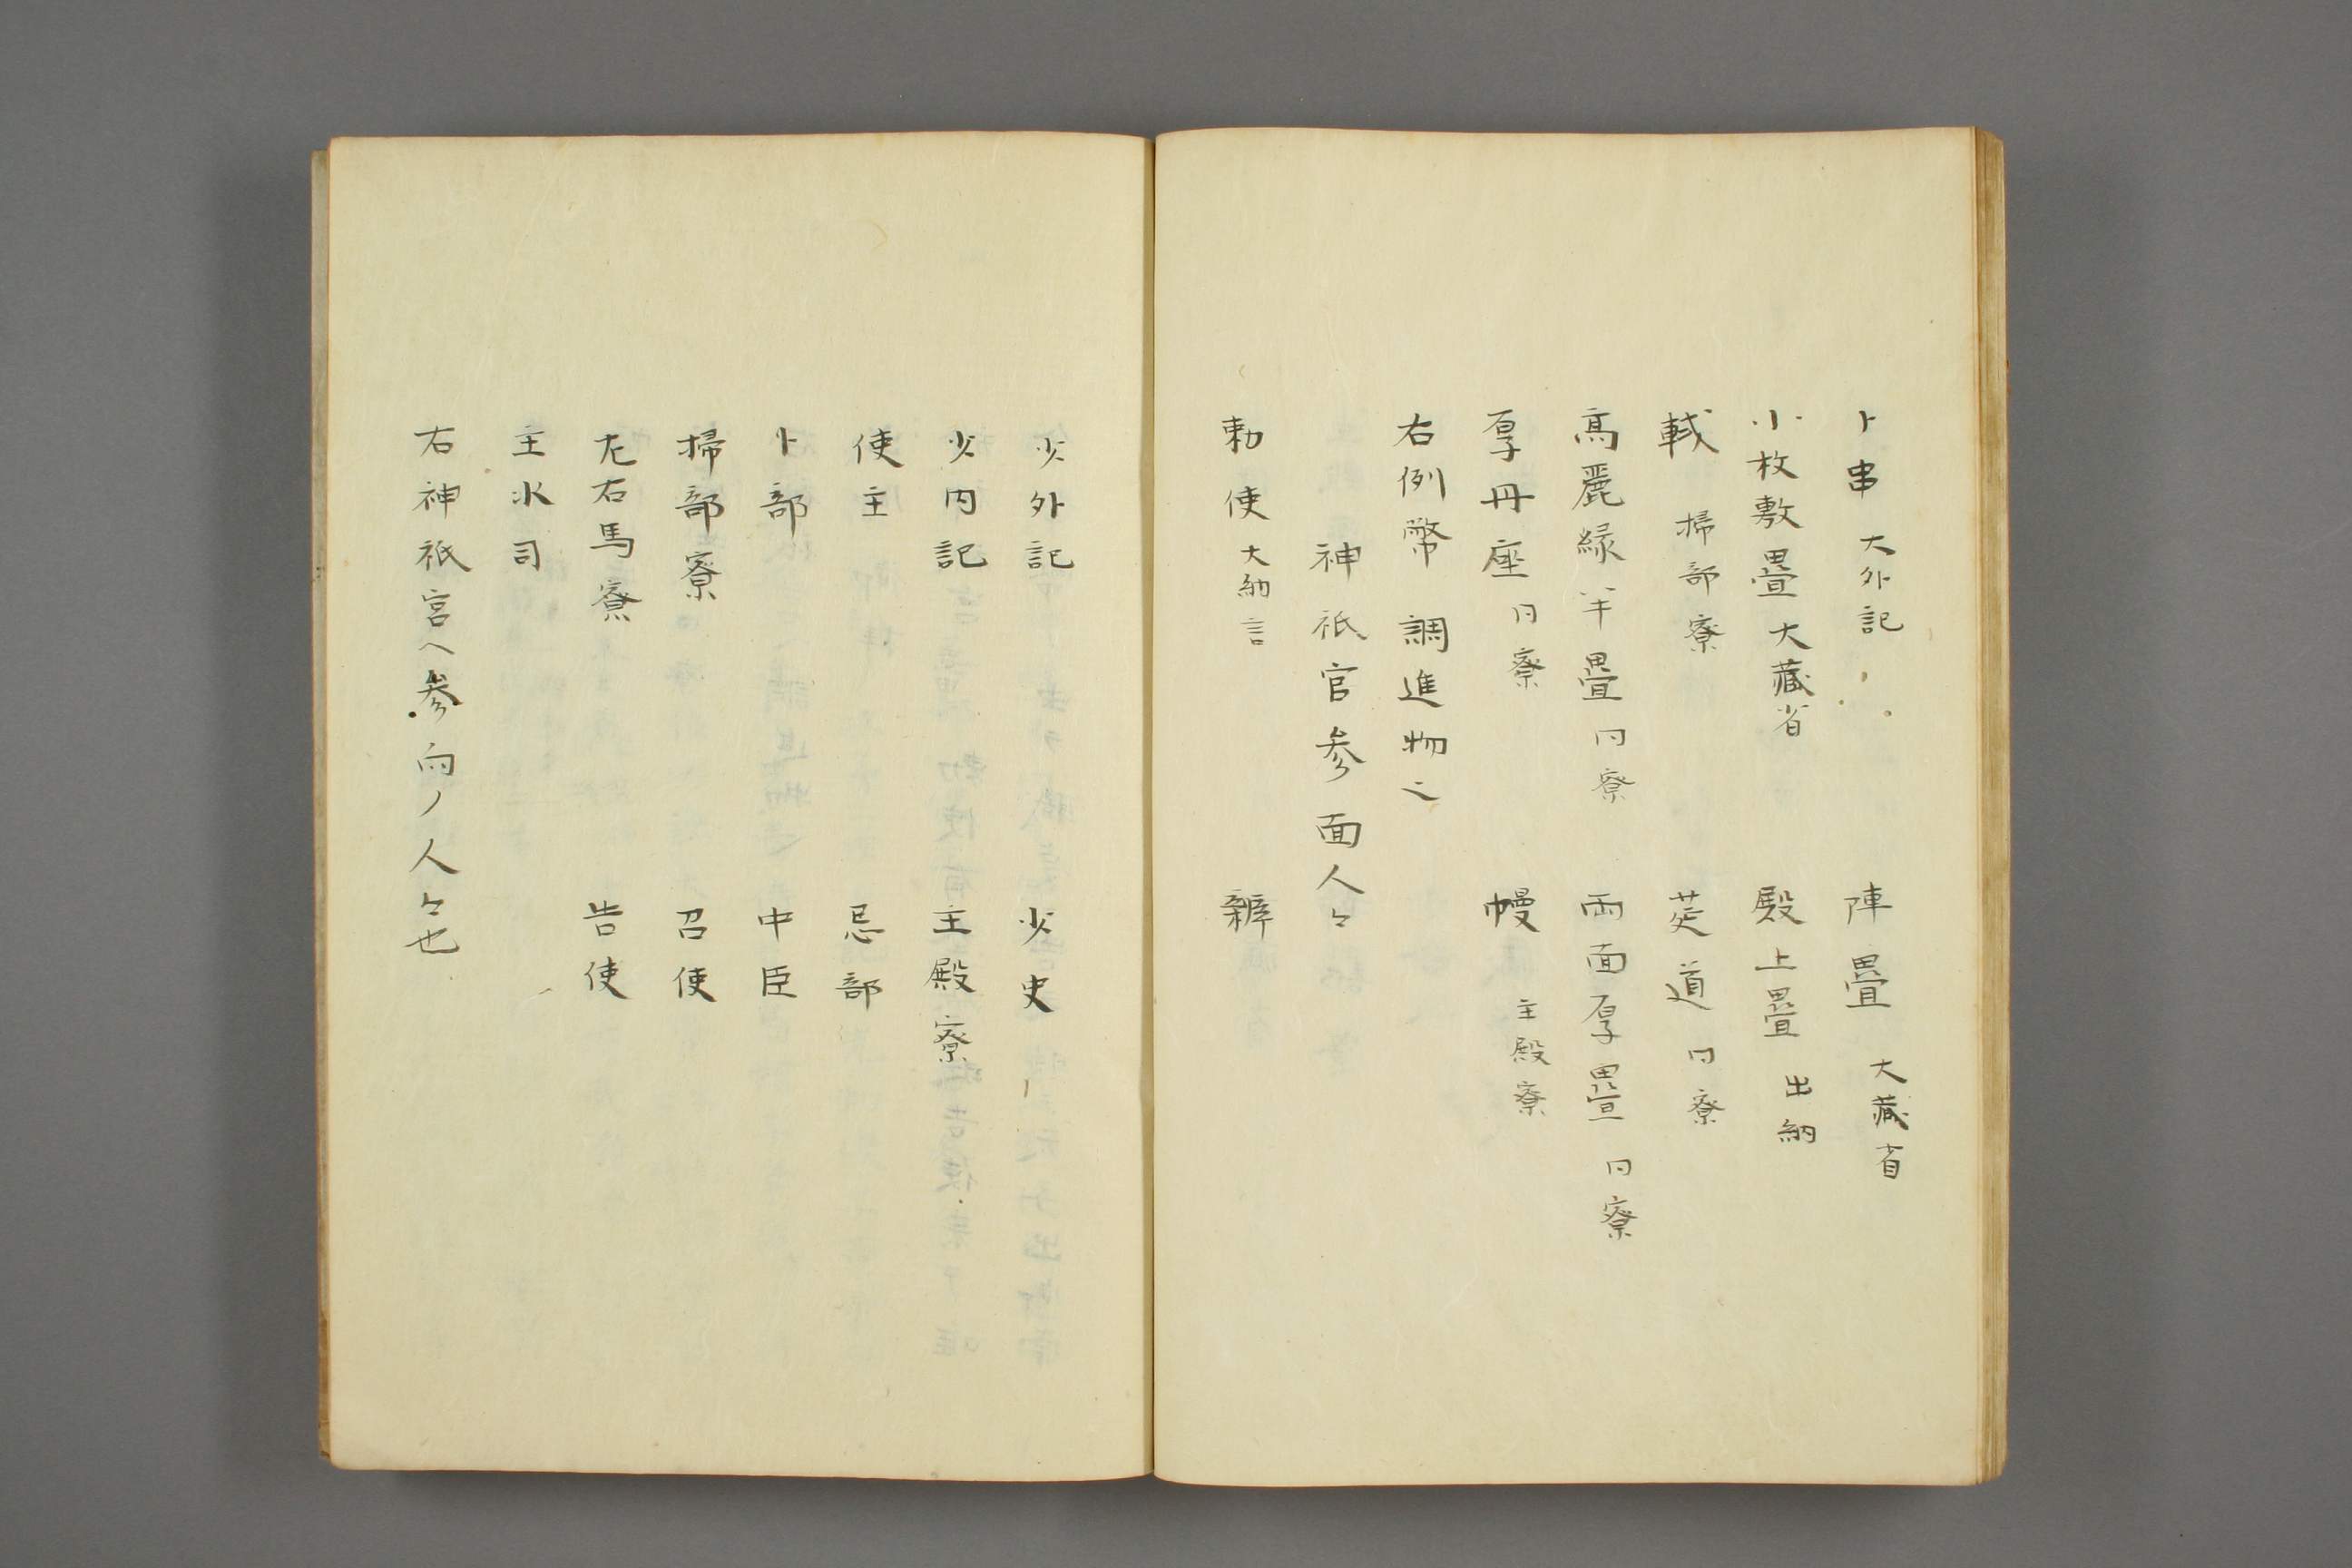 卜串 大外記 陣畳 大藏省
小枚敷畳 大藏省 殿上畳 出納
軾 掃部寮 筵道 同寮
高麗縁半畳 同寮 両面厚畳 同寮
厚円座 同寮 幔 主殿寮
右例幣 調進物之
神祇官参面人々
勅使 大納言 辨
少外記 少史
少内記 主殿寮
使主 忌部
卜部 中臣
掃部寮 召使
左右馬寮 告使
主水司
右神祇宮へ参向ノ人々也